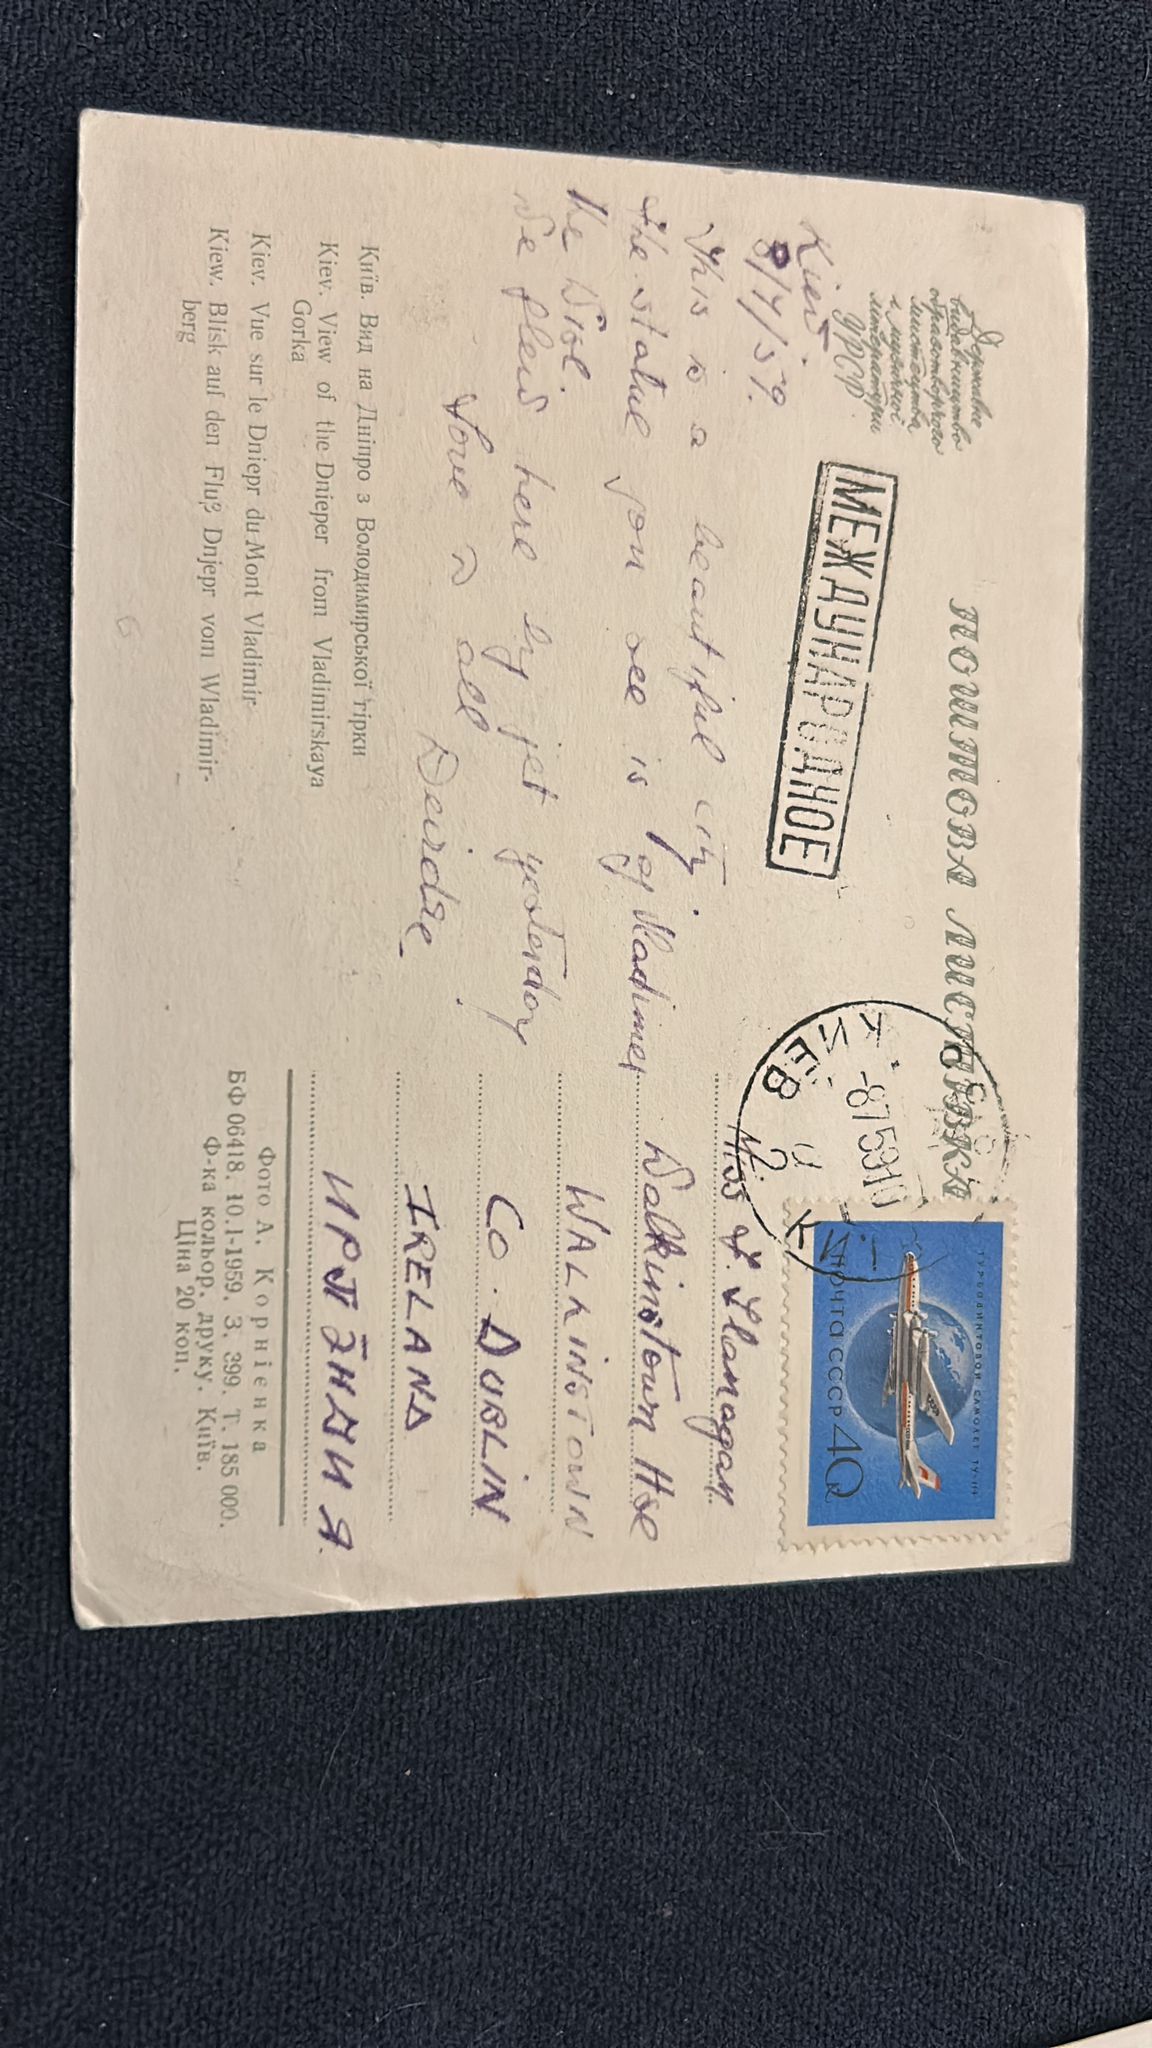 ПОШТОВА ЛИСТІВКА
Державне
видавництво
образотворчого
мистецтва
і музичної
літератури
УРСР
МЕЖДУНАРОДНОЕ
Kiev
8/7/59.
This is a beautiful city.
the statue you see is of Vladimer
the Wise.
We flew here by jet yesterday
Love to all
Deirdre
Київ. Вид на Дніпро з Володимирської гірки
Kiev. View of the Dnieper from Vladimirskaya
Gorka
Kiev. Vue sur le Dniepr du Mont Vladimir
Kiew. Blisk auf den Fluß Dnjepr vom Wladimir-
berg
КИЕВ
-8759
ТУРБОВИНТОВОЙ САМОЛЕТ ТУ-114
ПОЧТА СССР 40к
Miss Flanagan
Walkinstown Hse
WALKINSTOWN
CO. DUBLIN
IRELAND
ИРЛЭНДИЯ.
Фото А. Корнієнка
БФ 06418. 10.I-1959. З. 399. Т. 185 000.
Ф-ка кольор. друку. Київ.
Ціна 20 коп.